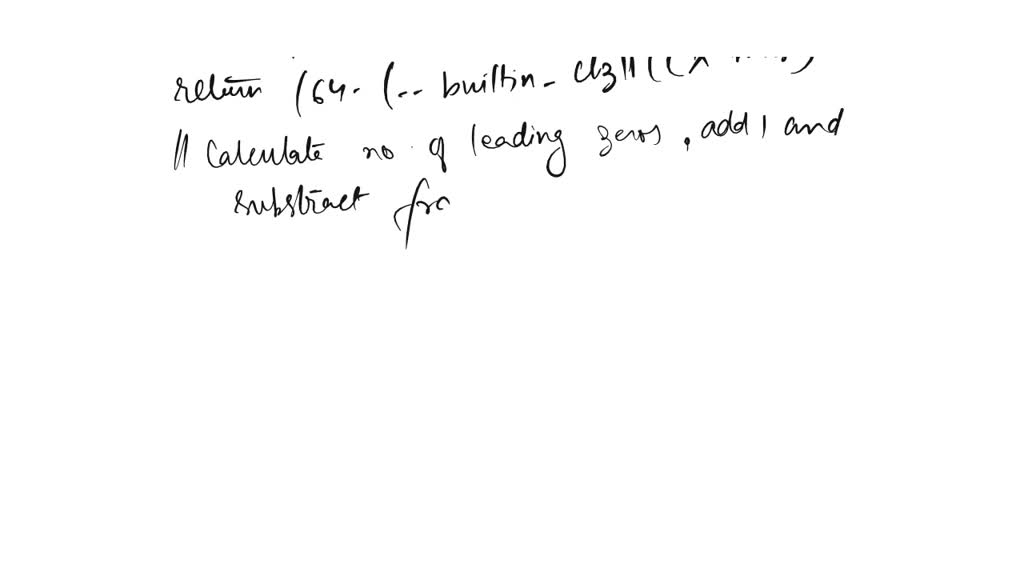 return (64- (-- builtin- clzll((x
// Calculate no. of leading zeros, add 1 and
substract fro